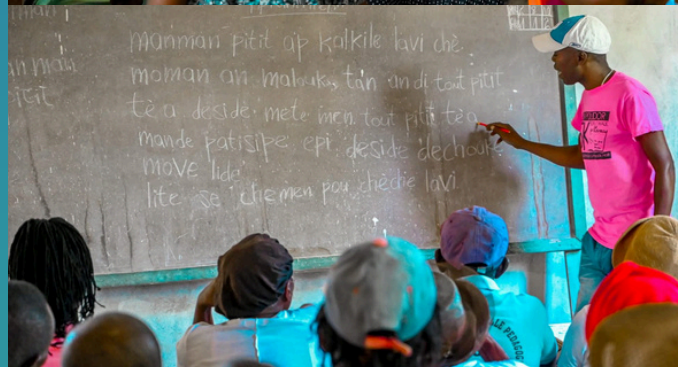 manman pitit ap kalkile lavi chè
moman an malouk, tan an di tout pitit
tè a deside mete men tout pitit tè a
mande patisipe epi deside dechouke
move lide
lite se chemen pou chèche lavi